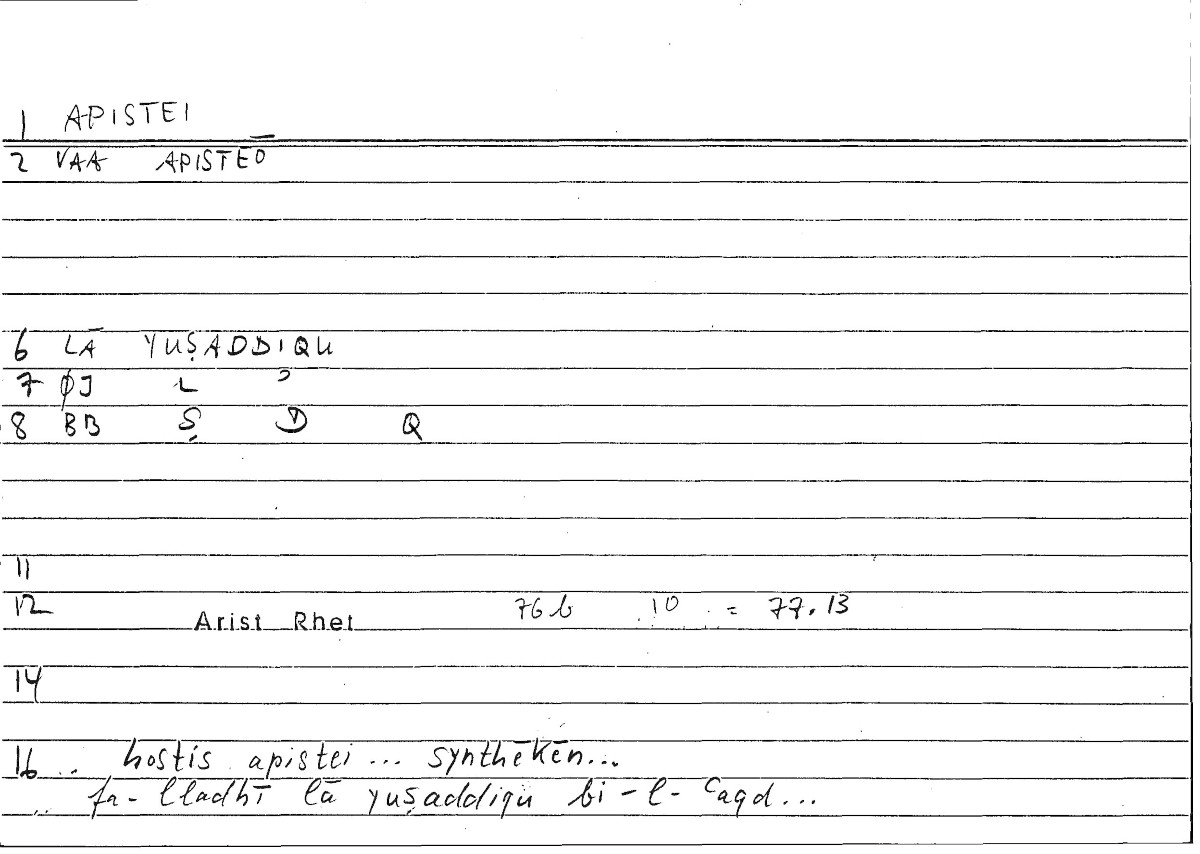 1 APISTEI
2 VAA APISTEŌ
6 LĀ YUṢADDIQU
7 ØJ L ʾ
8 BB Ṣ D Q
11
12 Arist Rhet 76b 10 = 77.13
14
16 .. hostis apistei ... synthēkēn...
.. fa-lladhī lā yuṣaddiqu bi-l-ʿaqd...